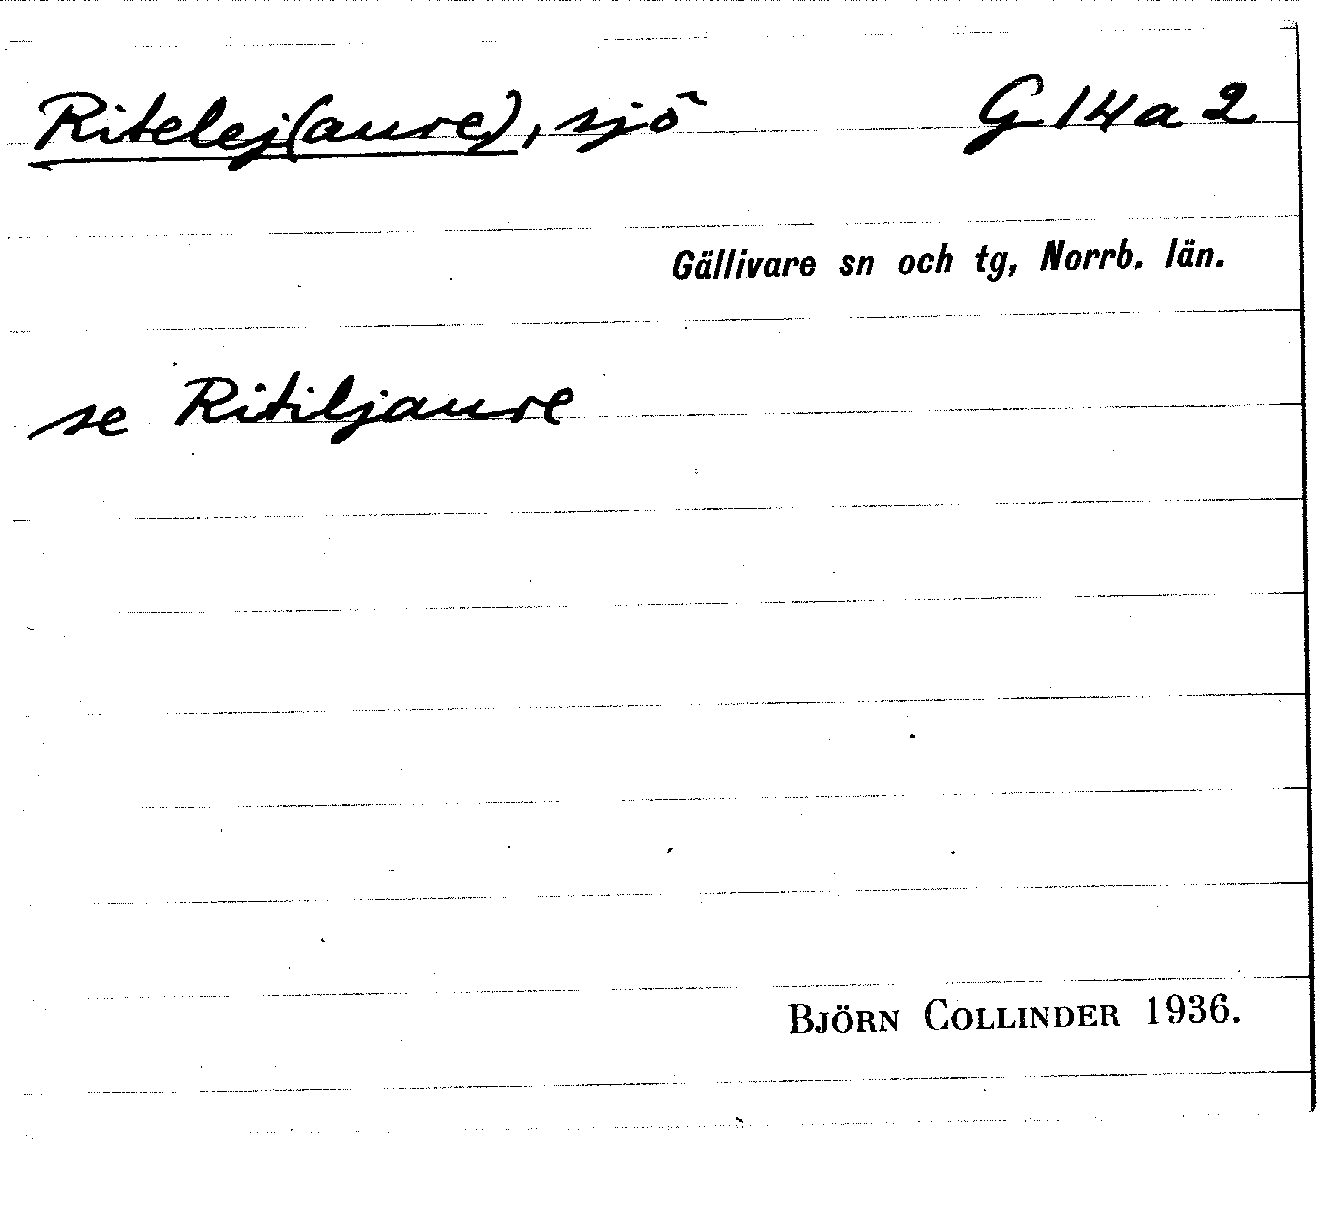 Ritelej(aure), sjö G 14 a 2
Gällivare sn och tg, Norrb. län.
se Ritiljaure
BJÖRN COLLINDER 1936.